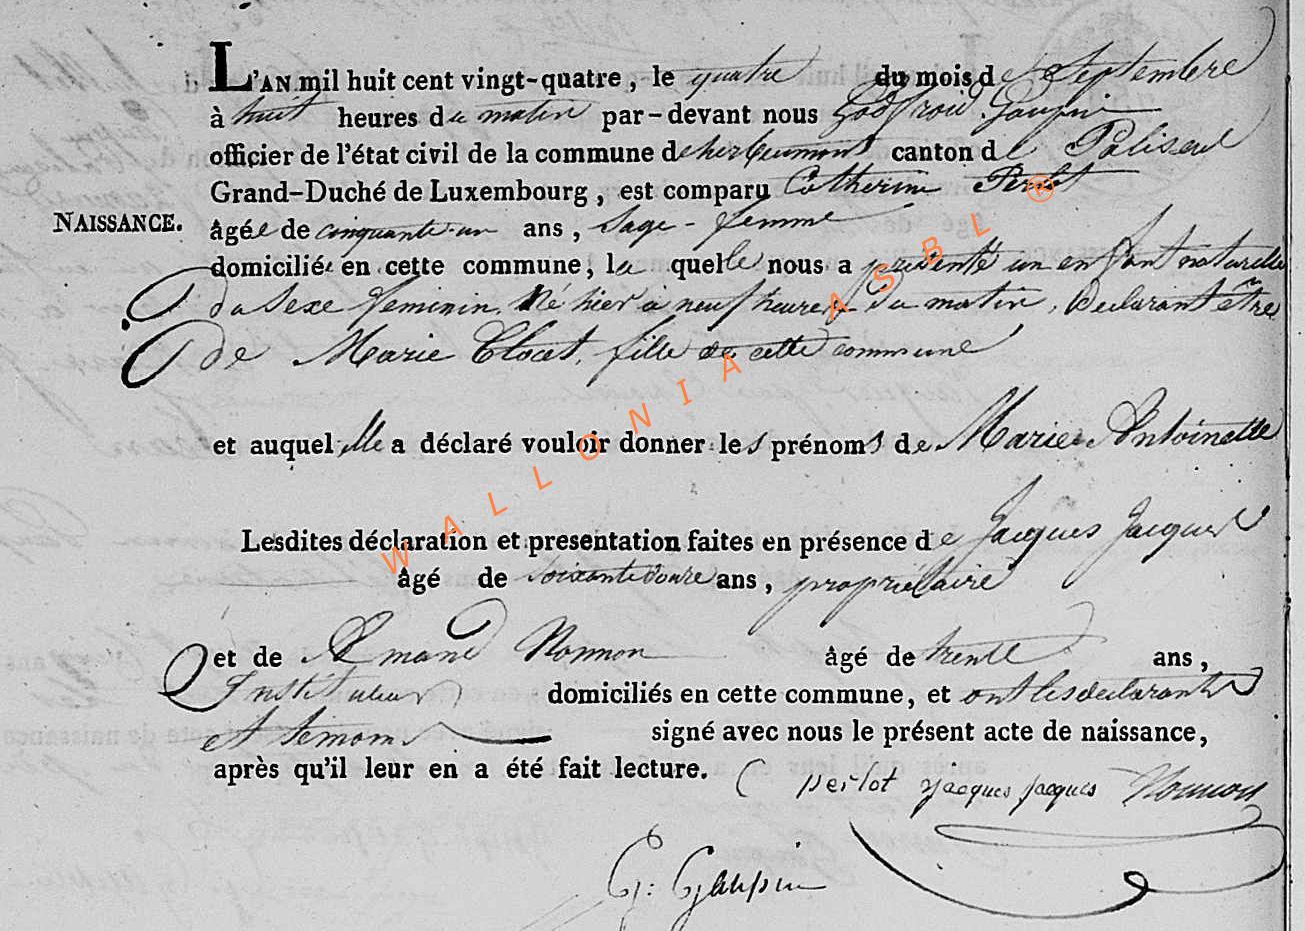 L'AN mil huit cent vingt-quatre, le quatre du mois de Septembre
à huit heures du matin par-devant nous Godfroid Goupin
officier de l'état civil de la commune d'herbeumont canton de Paliseul
Grand-Duché de Luxembourg, est comparu Catherine Perlot
NAISSANCE. âgée de cinquante-un ans, Sage-femme
domiciliée en cette commune, la quelle nous a présenté un enfant naturelle
du Sexe feminin, Né hier à neuf heures du matin, Declarant être
de Marie Clocet, fille de cette commune
et auquel elle a déclaré vouloir donner les prénoms de Marie Antoinette
Lesdites déclaration et presentation faites en présence de Jacques Jacques
âgé de ans, propriétaire
et de Amand Nonnon âgé de trente ans,
Instituteur domiciliés en cette commune, et ont les declarants
et temoins signé avec nous le présent acte de naissance,
après qu'il leur en a été fait lecture.
C perlot jacques jacques Nonnon
G: Gaupin
WALLONIA ASBL ®